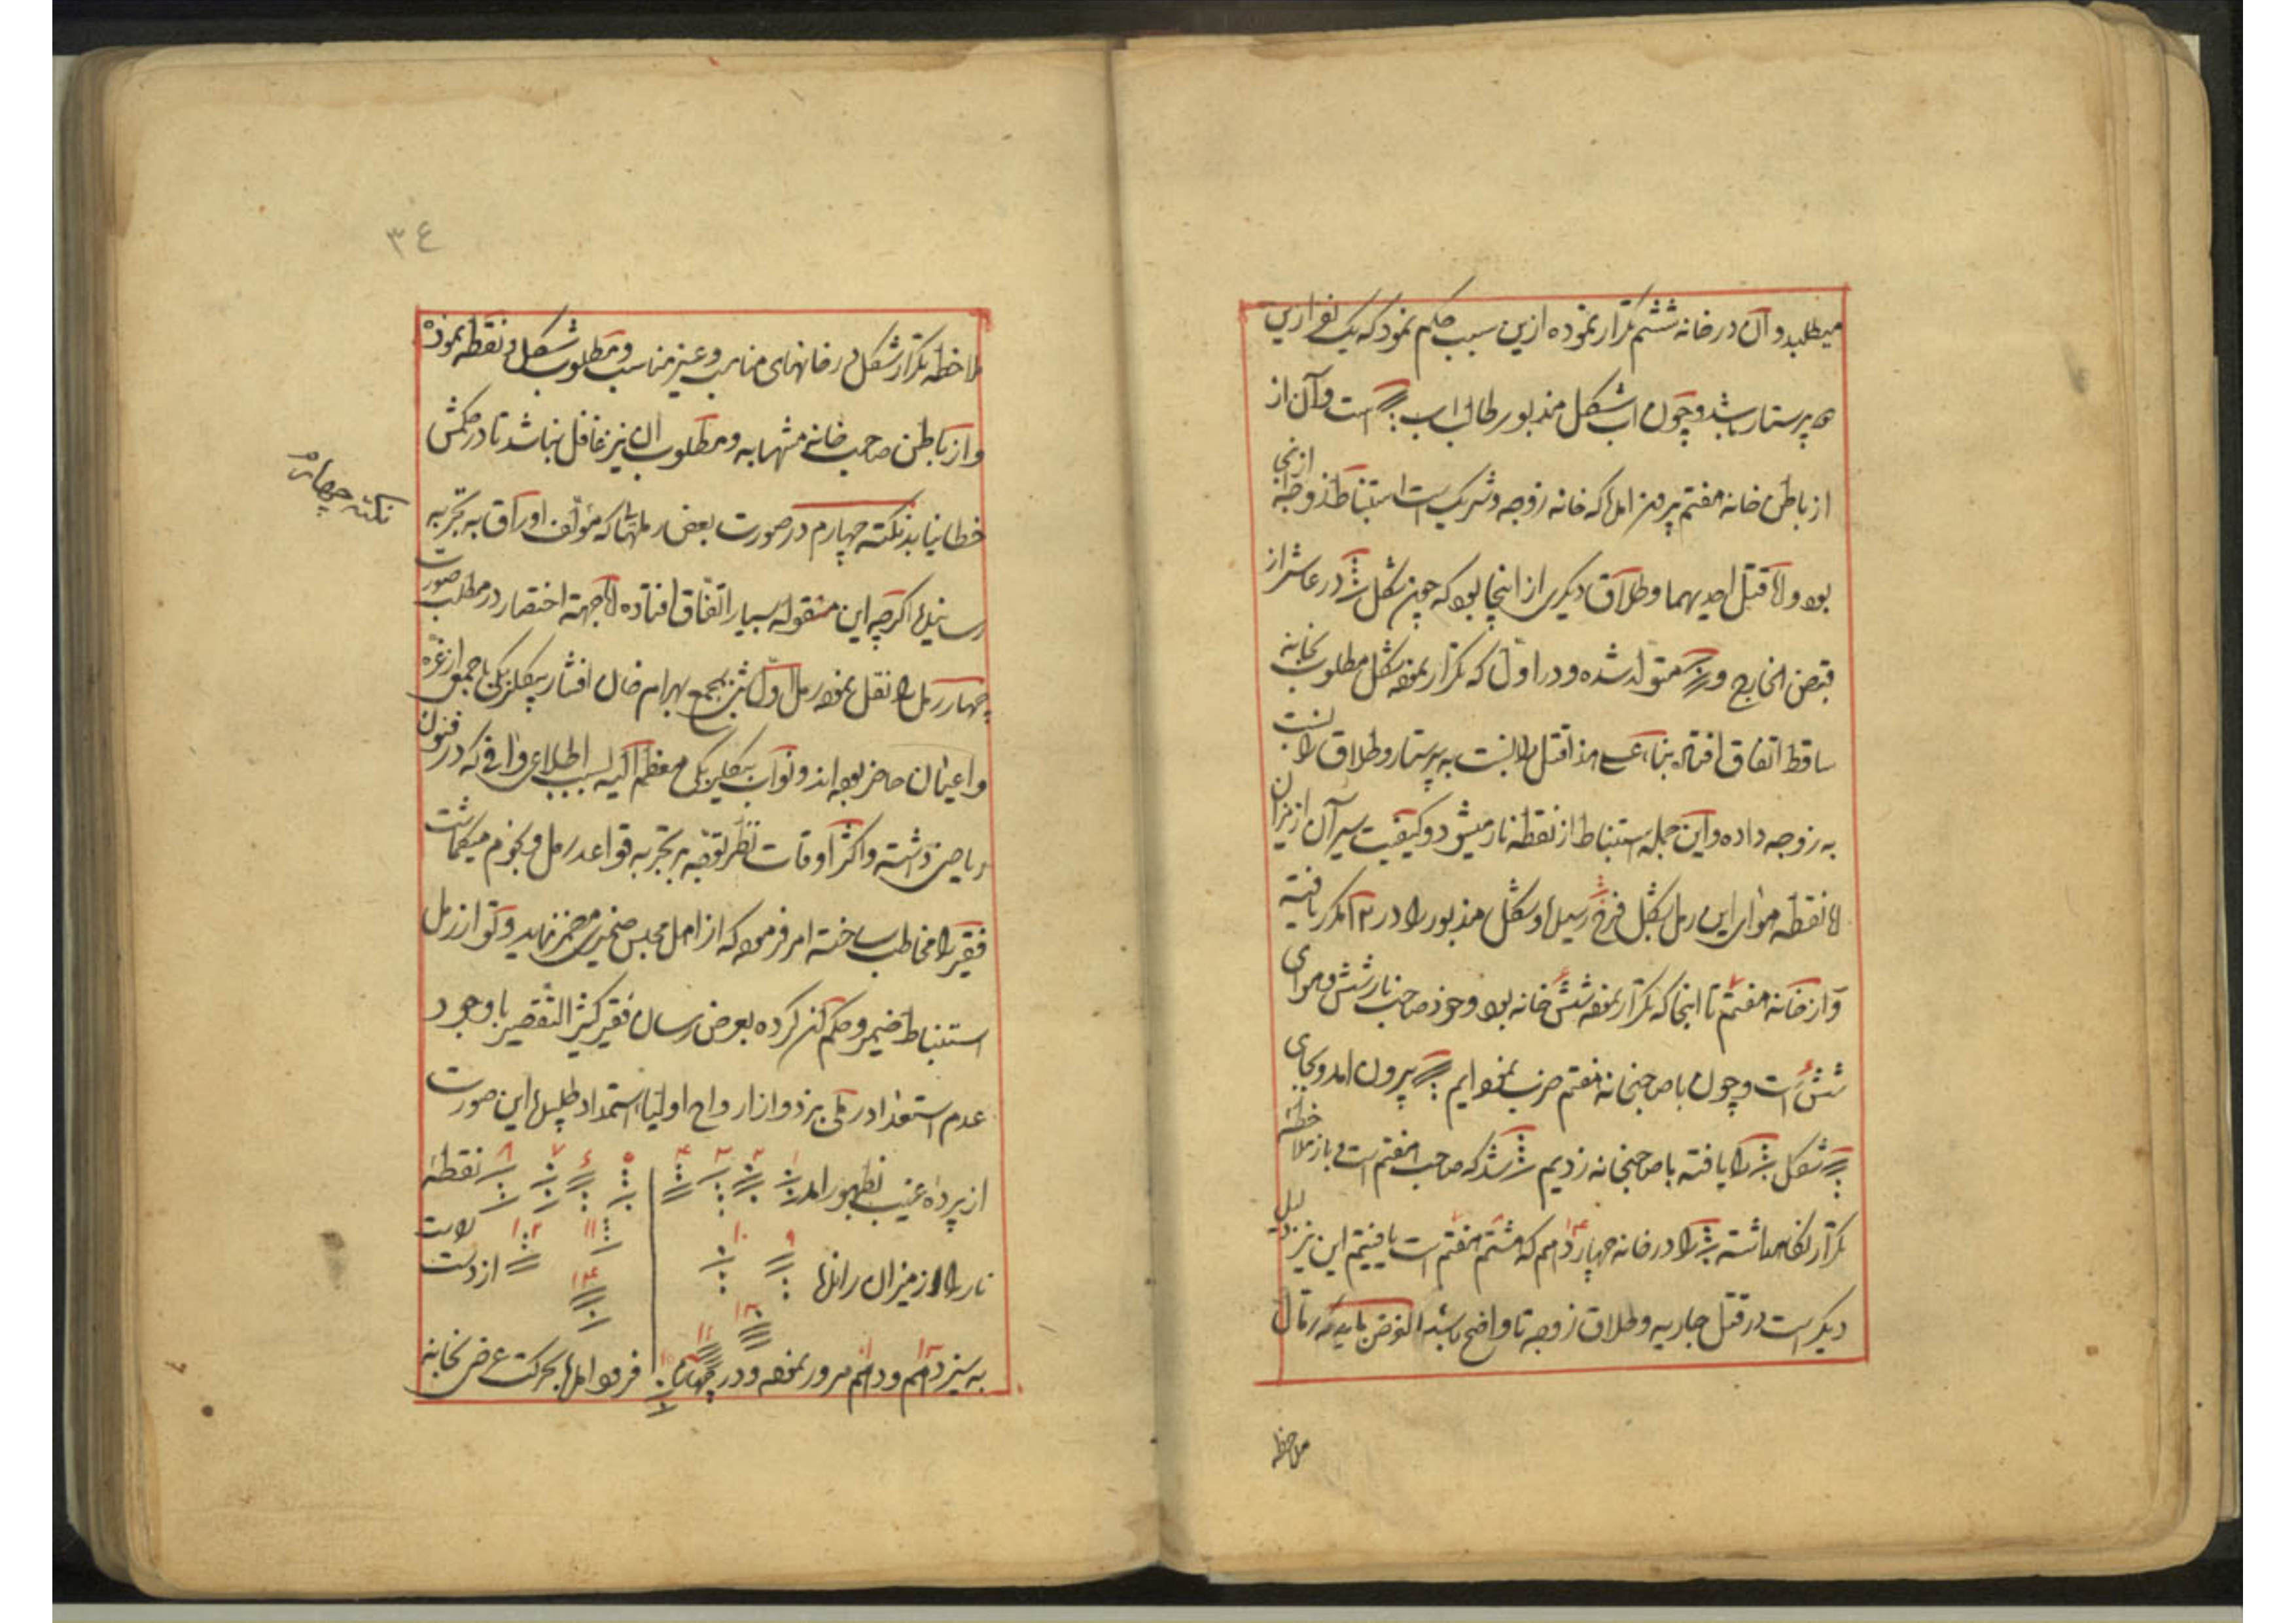 میطلبد و آن در خانه ششم تکرار نموده ازین سبب حکم نمود که یک نفر ازین
پرستار باشد و چون اب شکل مذبور طالب اب است و آن از
از باطن خانه هفتم بیرون امد که خانه زوجه و شریک است استنباط زوجه از انجا
بود و الا قتل احدیهما و طلاق دیگری از اینجا بود که چون شکل در عاشر از
قبض الخارج و متولد شده و در اول که تکرار نموده شکل مطلوب بخانه
ساقط اتفاق افتاد بناء علی هذا قتل را نسبت به پرستار و طلاق را نسبت
به زوجه داده و این جمله استنباط از نقطه نار میشود و کیفیت سیر آن از میزان
لا نقطه هوای این رمل بشکل فرح رسید و شکل مذبور را در ۱۲ مکرر یافته
و از خانه هفتم تا اینجا که تکرار نموده شش خانه بود و خود صاحب نار شش و هوای
شش است و چون با صاحبخانه هفتم ضرب نموده ایم بیرون امد و بجای
شکل را یافته با صاحبخانه زدیم شد که صاحب هفتم است و باز ملاحظه
تکرار نگاه داشته را در خانه چهاردهم که هشتم هفتم است یافتیم این نیز دلیل
دیگر است در قتل جاریه و طلاق زوجه تا واضح باشد الغرض باید که رمال
ملاحظه
۳٤
ملاحظه تکرار شکل در خانهای مناسب و غیر مناسب و مطلوب شکل و نقطه نموده
و از باطن صاحب خانه مشهابه و مطلوب ان نیز غافل نباشد تا در حکمش
خطا نیابد نکته چهارم در صورت بعض رملها که مؤلف اوراق به تجربه
نکته چهارم
رسانیده اکرچه این مقوله بسیار اتفاق افتاده لا جهة اختصار در مطلب صورت
چهار رمل را نقل نموده رمل اول شبی بمجمع بهرام خان افشار بیکلربیکی با جمعی از غره
و اعیان حاضر بوده اند و نواب بیکلربیکی معظم الیه بسبب اطلاع وافی که در فنون
ریاضی داشته و اکثر اوقات نظر توجه بر تجربه قواعد رمل و نجوم میکماشت
فقیر را مخاطب ساخته امر فرمود که از اهل مجلس ضمیری مضمر نماید و تو از رمل
استنباط ضمیر و حکم کن کرده بعرض رسان فقیر کثیر التقصیر با وجود
عدم استعداد رملی بزد و از ارواح اولیا استمداد طلبید این صورت
از پرده غیب بظهور امد ۱ ۲ ۳ ۴ ۵ ۶ ۷ ۸ نقطه
نار را از میزان راند ۹ ۱۰ ۱۱ ۱۲ از دست راست
به سیزدهم و دهم مرور نموده و در چهارم فرود امد بحرکت عرض بخانه